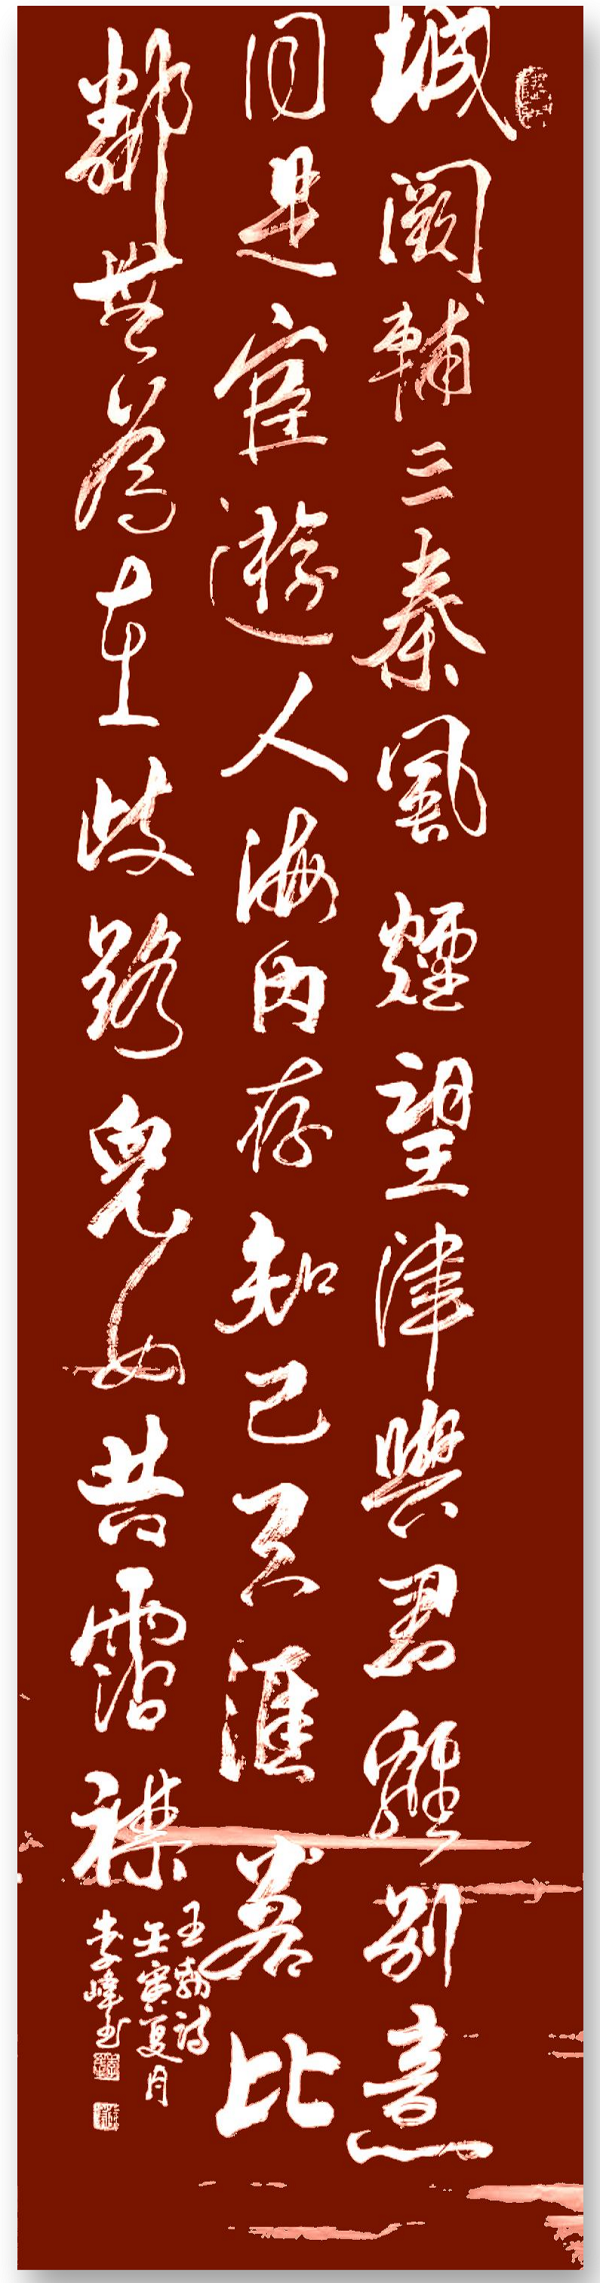 城闕輔三秦風煙望津與君離別意
同是宦遊人海內存知己天涯若比
鄰無為在歧路兒女共霑襟
王勃詩
壬寅夏月
李峰书